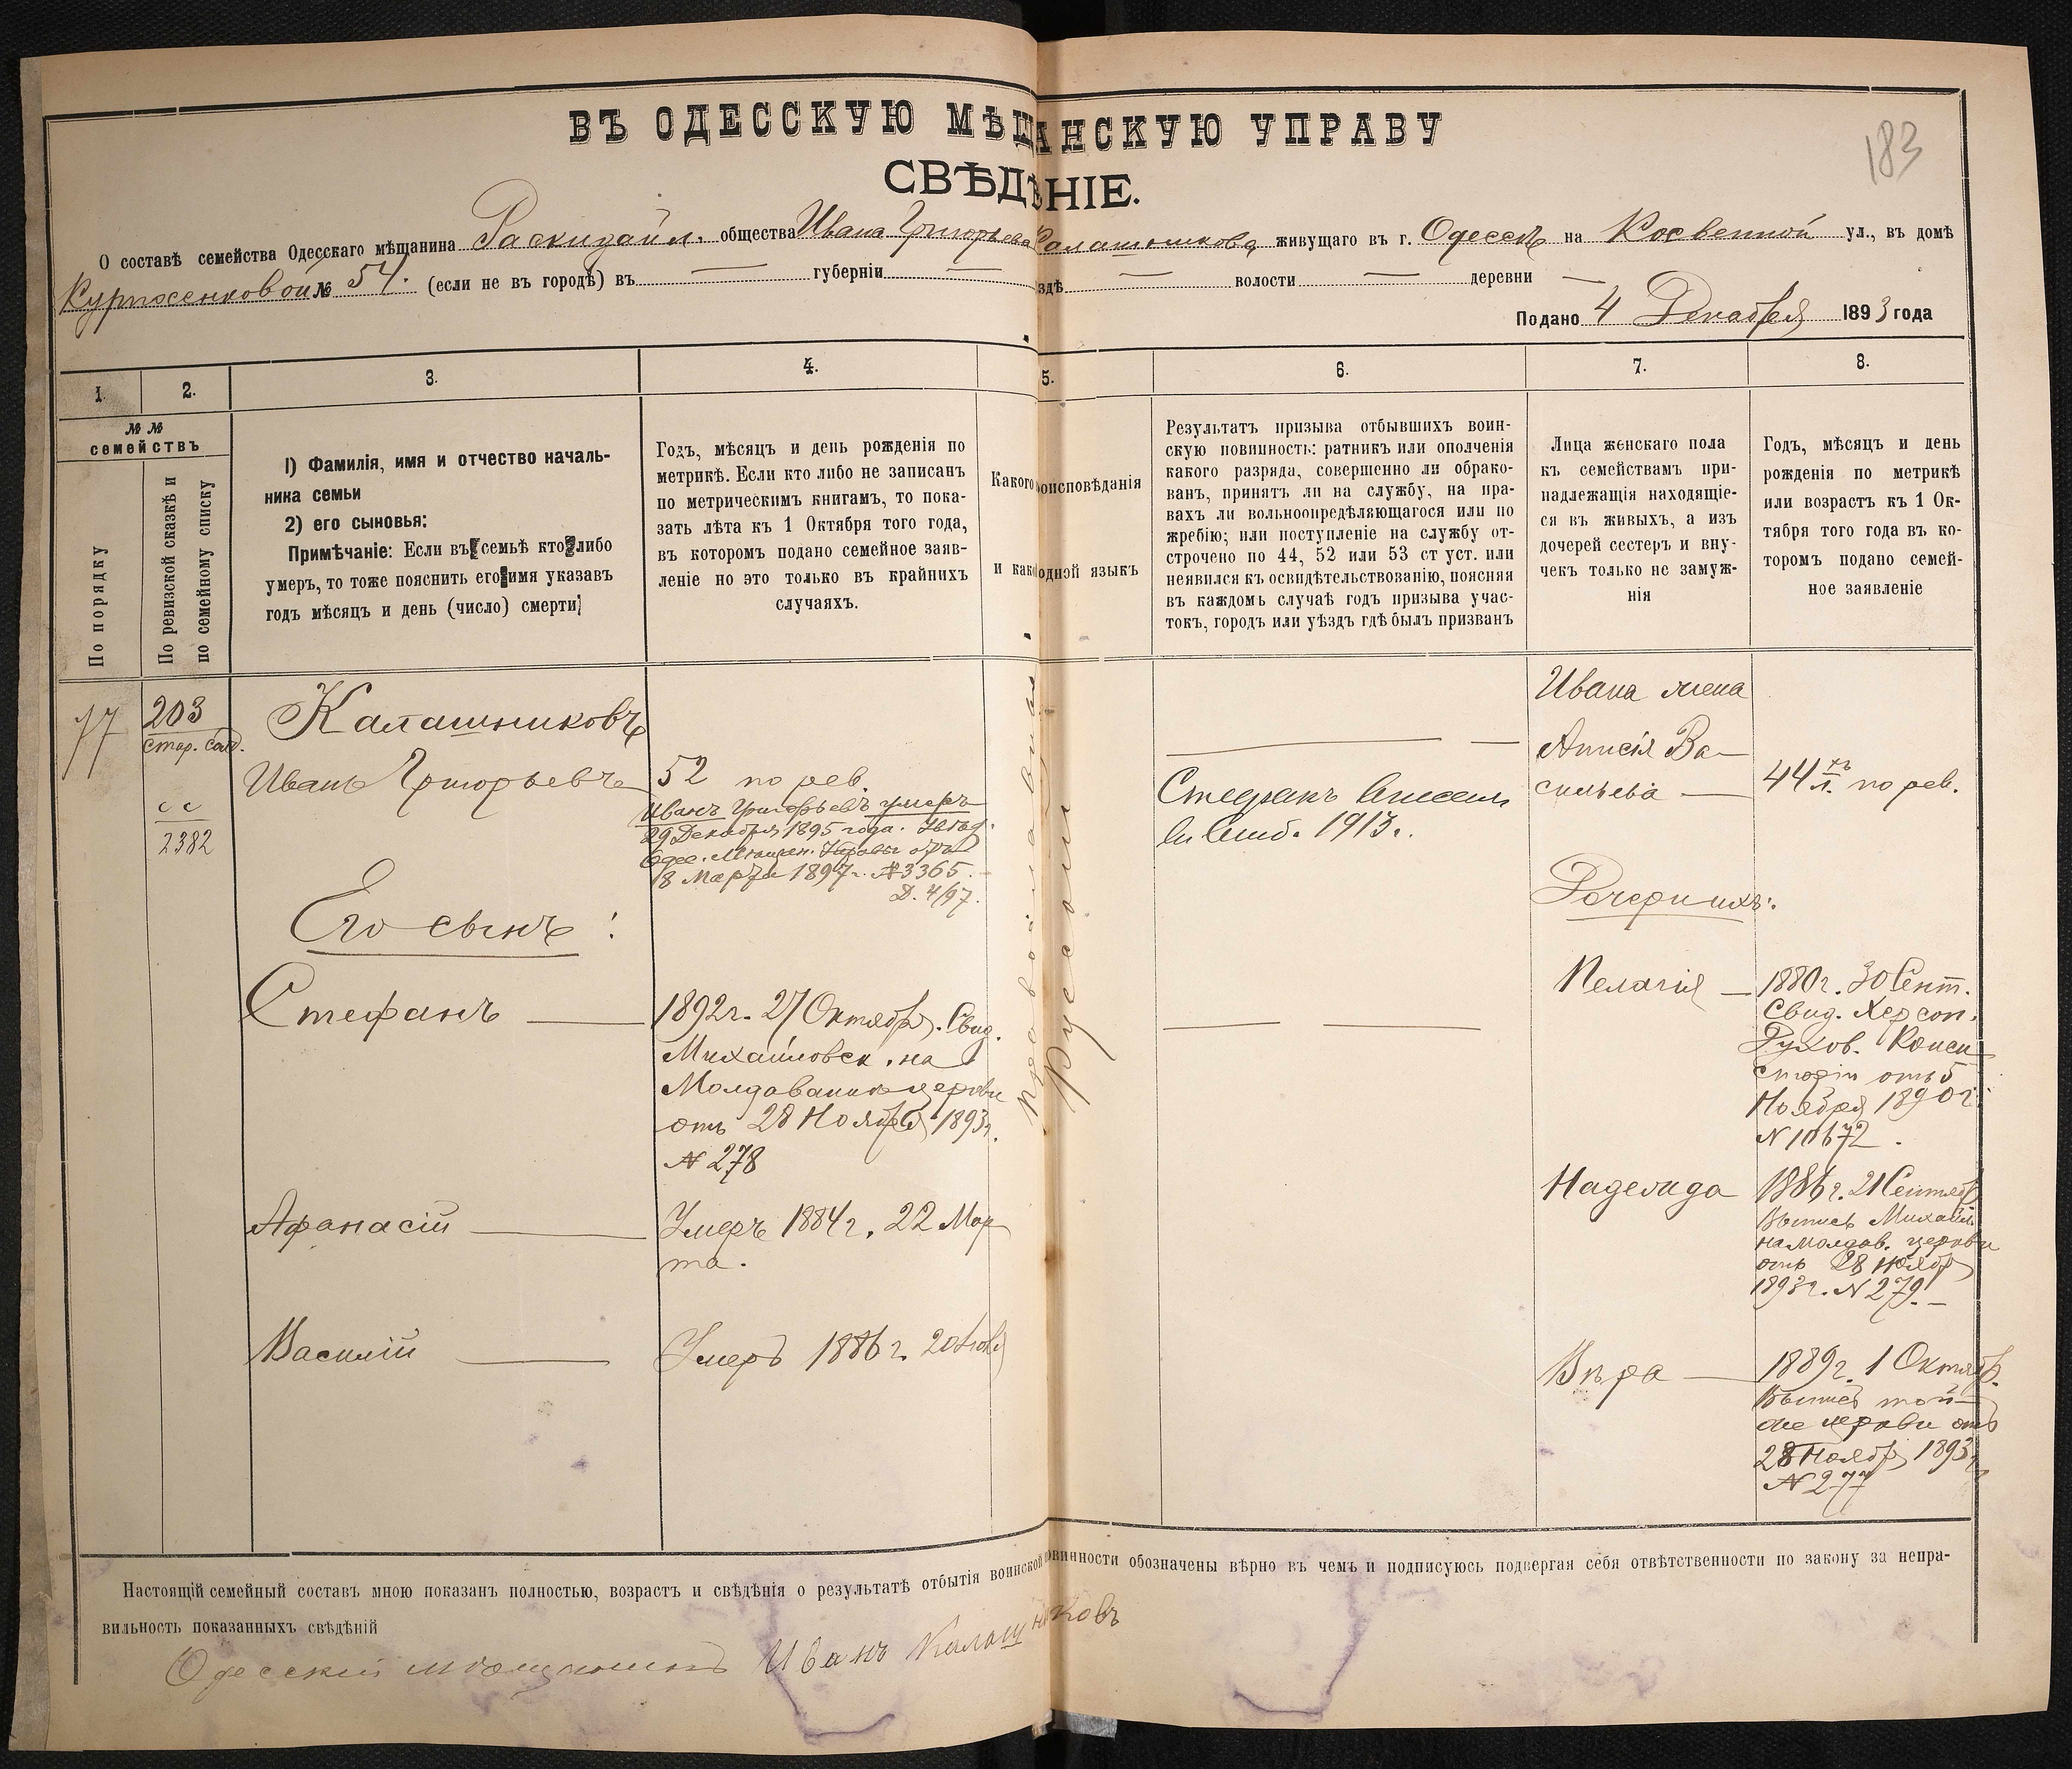 183
ВЪ ОДЕССКУЮ МѢЩАНСКУЮ УПРАВУ
СВѢДѢНІЕ.
О составѣ семейства Одесскаго мѣщанина Раскидайл. общества Ивана Григорьева Калашникова живущаго въ г. Одессѣ на Косвенной ул., въ домѣ
№ 54. (если не въ городѣ) въ — губерніи — здѣ — волости — деревни —
Подано 4 Декабря 1893 года
1. 2. 3. 4. 5. 6. 7. 8.
№№
семействъ
По порядку
По ревизской сказкѣ и
по семейному списку
1) Фамилія, имя и отчество началь-
ника семьи
2) его сыновья:
Примѣчаніе: Если въ семьѣ кто либо
умеръ, то тоже пояснить его имя указавъ
годъ мѣсяцъ и день (число) смерти
Годъ, мѣсяцъ и день рожденія по
метрикѣ. Если кто либо не записанъ
по метрическимъ книгамъ, то пока-
зать лѣта къ 1 Октября того года,
въ которомъ подано семейное заяв-
леніе но это только въ крайнихъ
случаяхъ.
Какого оисповѣданія
и како одной языкъ
Результатъ призыва отбывшихъ воин-
скую повинность: ратникъ или ополченія
какого разряда, совершенно ли обрако-
ванъ, принятъ ли на службу, на пра-
вахъ ли вольноопредѣляющагося или по
жребію; или поступленіе на службу от-
строчено по 44, 52 или 53 ст уст. или
неявился къ освидѣтельствованію, поясняя
въ каждомъ случаѣ годъ призыва учас-
токъ, городъ или уѣздъ гдѣ былъ призванъ
Лица женскаго пола
къ семействамъ при-
надлежащія находящіе-
ся въ живыхъ, а изъ
дочерей сестеръ и вну-
чекъ только не замуж-
нія
Годъ, мѣсяцъ и день
рожденія по метрикѣ
или возрастъ къ 1 Ок-
тября того года въ ко-
торомъ подано семей-
ное заявленіе
17
203
стар.
сс
2382
Калашниковъ
Иванъ Григорьевъ
52 по рев.
Иванъ Григорьевъ умеръ
29 Декабря 1895 года.
Одес. Мѣщан. Управы отъ
18 Марта 1897 г. №3365.
Д. 4/97.
Его сынъ:
Стефанъ —
1892 г. 27 Октября. Свид.
Михайловск. на
Молдаванкѣ церкви
отъ 28 Ноября 1893 г.
№ 278
Афанасій —
Умеръ 1884 г. 22 Мар
та.
Василій —
Умеръ 1886 г. 20
Православный
Русскій
Стефанъ
1913 г.
Ивана жена
Анисія Ва-
сильева —
44 л. по рев.
Дочери ихъ:
Пелагія —
1880 г. 30 Сент.
Свид. Херсон.
Духов. Конси
сторіи отъ 5
Ноября 1890 г.
№ 10672.
Надежда
1886 г. 21 Сентяб
Выпись Михайл.
на Молдав. церкви
отъ 28 Ноября
1893 г. № 279. —
Вѣра —
1889 г. 1 Октяб.
Выпись той-
же церкви отъ
28 Ноябр 1893 г.
№ 277
Настоящій семейный составъ мною показанъ полностью, возрастъ и свѣдѣнія о результатѣ отбытія воинской повинности обозначены вѣрно въ чемъ и подписуюсь подвергая себя отвѣтственности по закону за непра-
вильность показанныхъ свѣдѣній
Одесскій мѣщанинъ Иванъ Калашниковъ